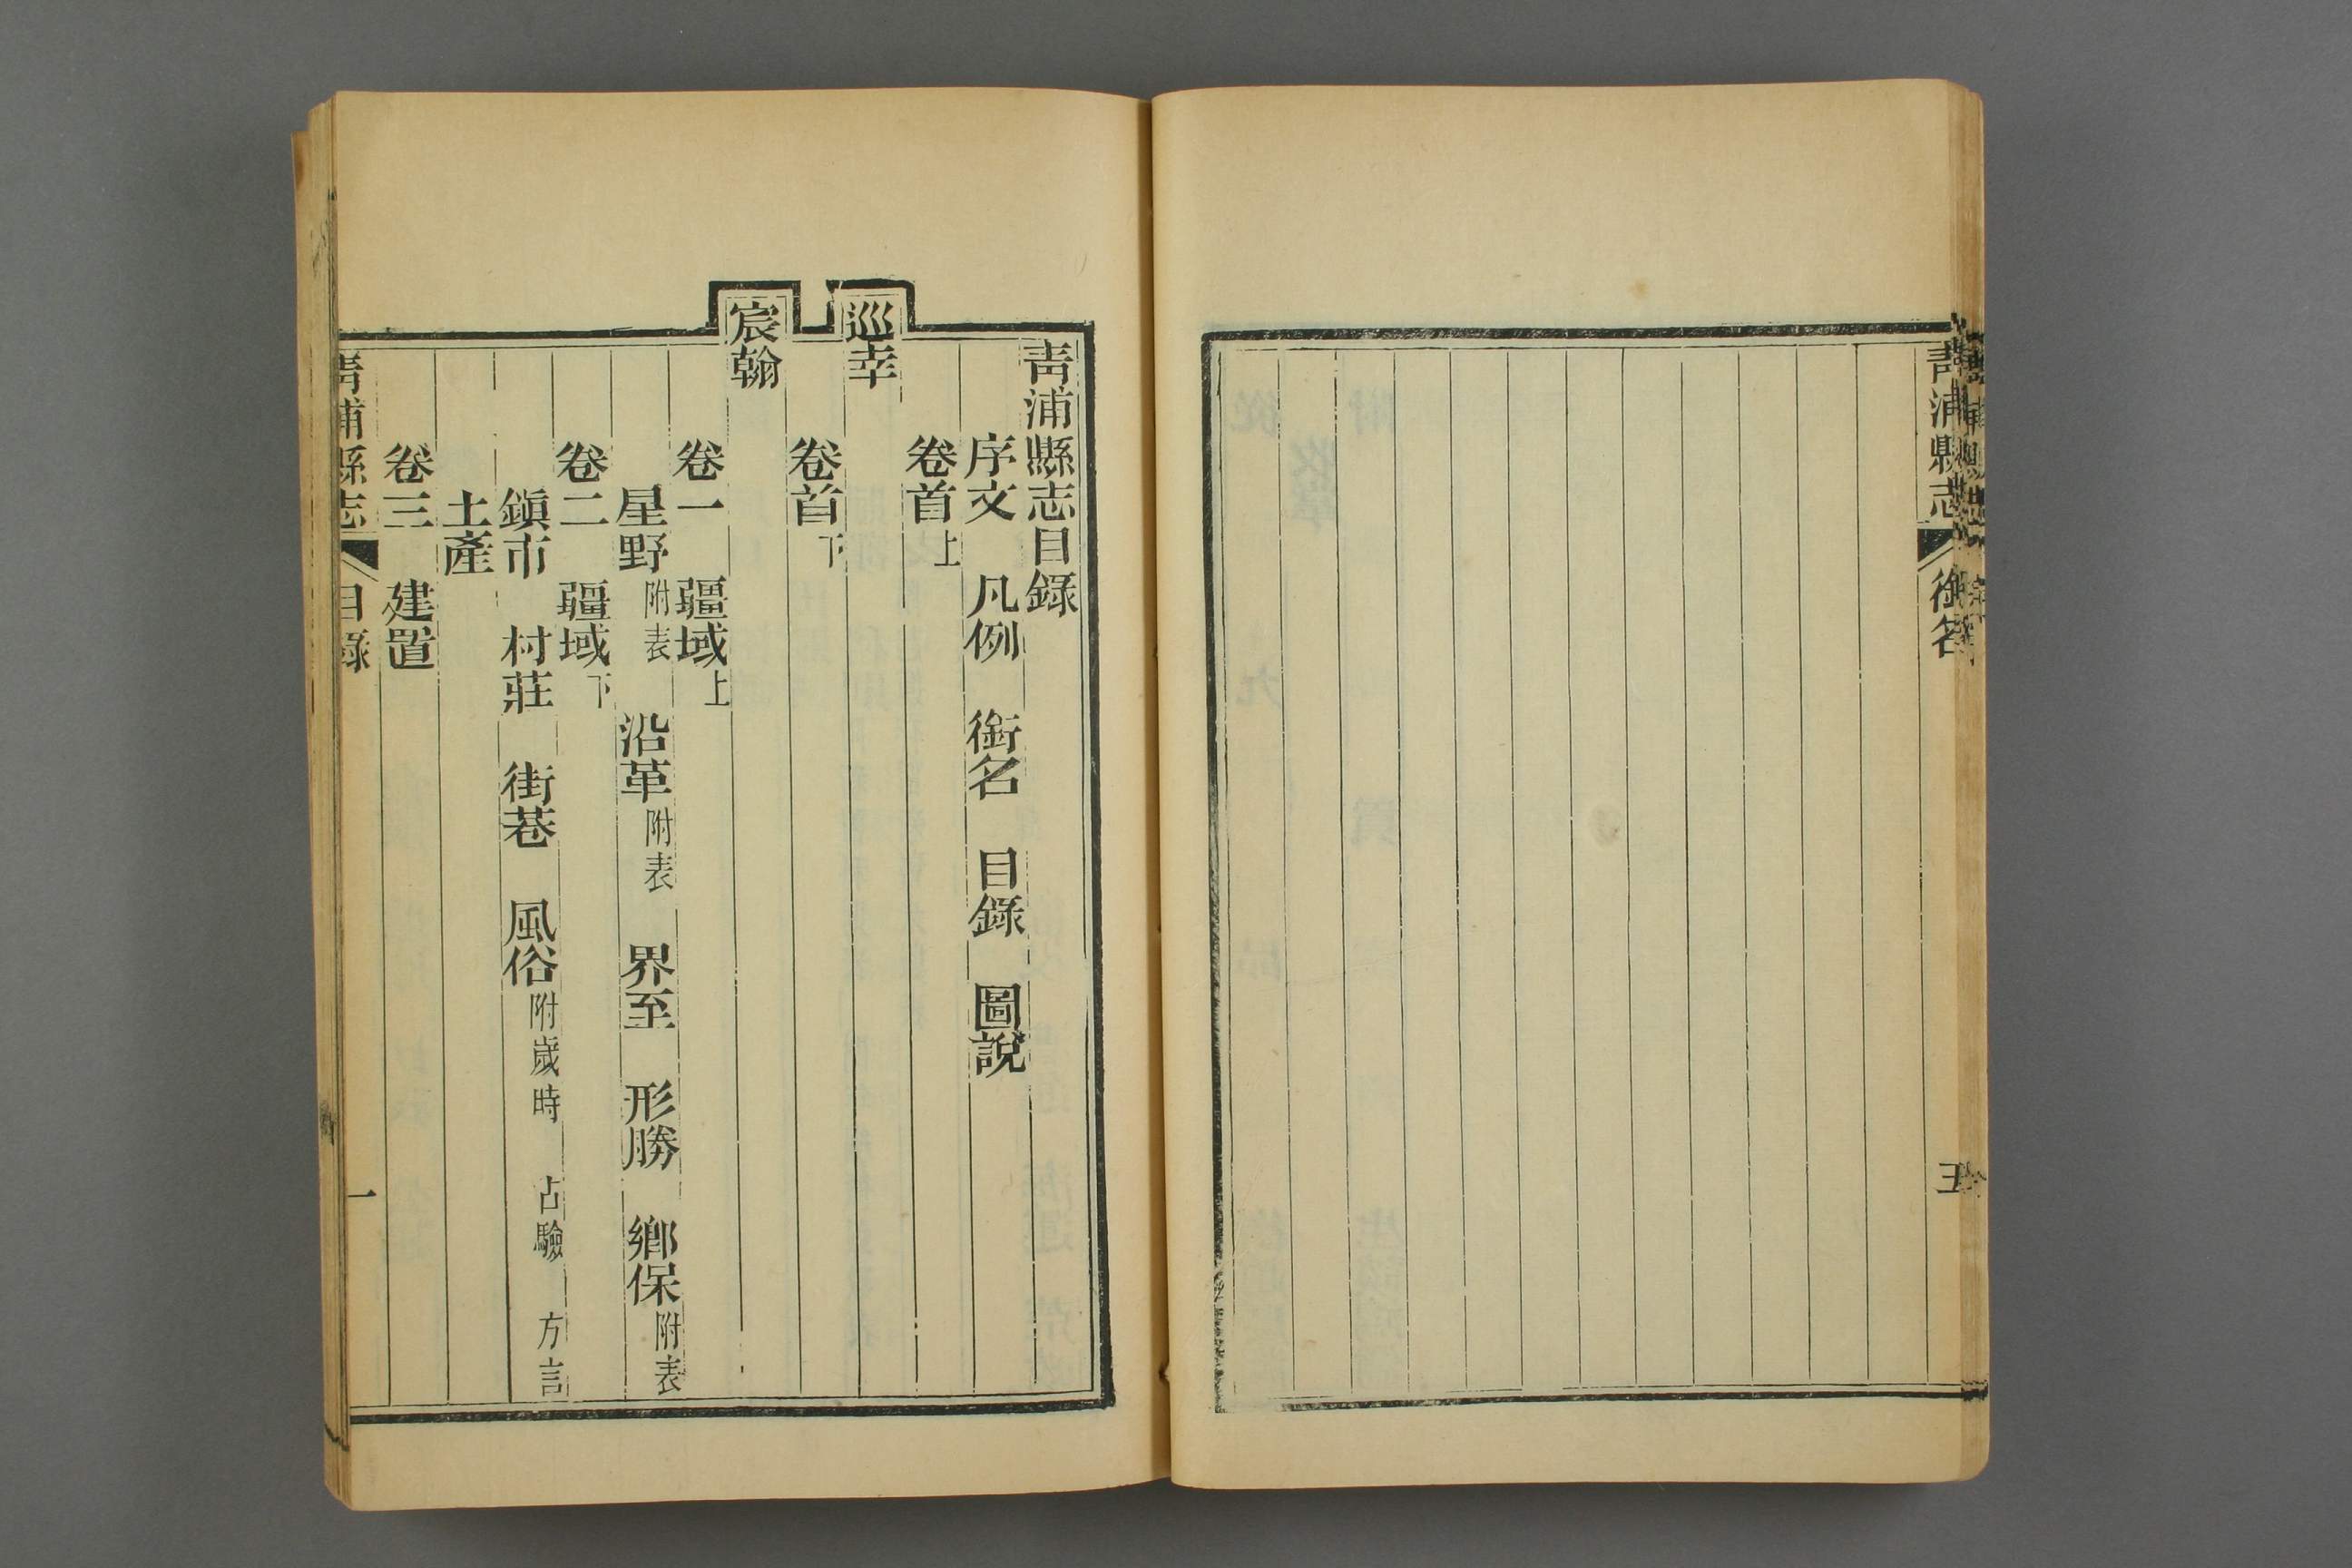 青浦縣志
銜名
五
青浦縣志目錄
序文 凡例 銜名 目錄 圖說
卷首上
巡幸
卷首下
宸翰
卷一 疆域上
星野附表 沿革附表 界至 形勝 鄉保附表
卷二 疆域下
鎮市 村莊 街巷 風俗附歲時 占驗 方言
土產
卷三 建置
青浦縣志 目錄 一